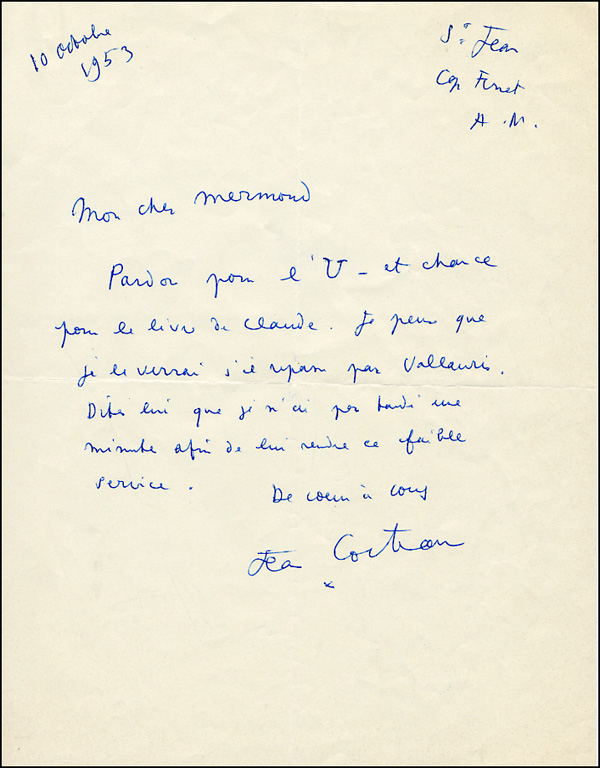 10 octobre
1953
St Jean
Cap Ferrat
A.M.
Mon cher Mermoud
Pardon pour l'U - et chance
pour le livre de Claude. Je pense que
je le verrai s'il repasse par Vallauris.
Dites lui que je n'ai pas tardé une
minute afin de lui rendre ce faible
service.
De coeur à vous
Jean Cocteau